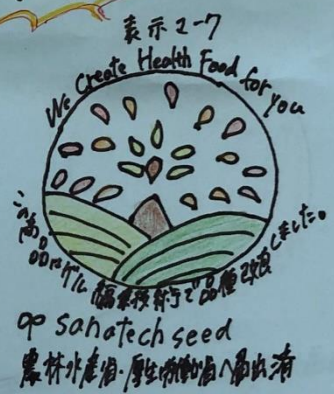 表示マーク
We Create Health Food for you
この商品はゲノム編集技術で品種改良しました。
op sanatech seed
農林水産省・厚生労働省へ届出済